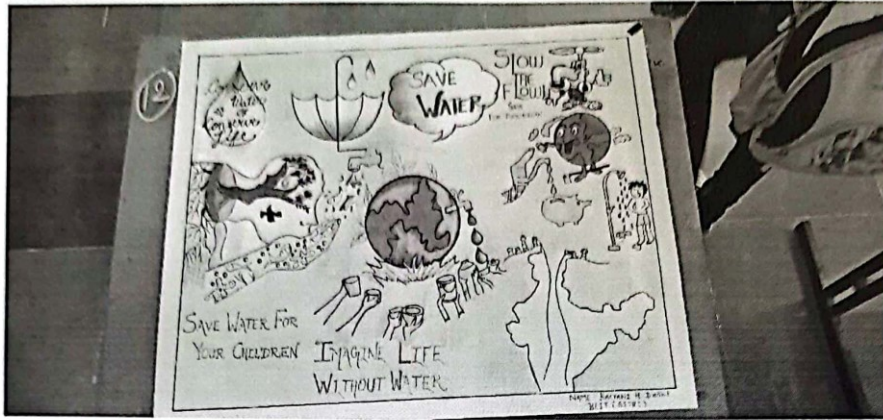 12
Conserve
Water
Conserve
Life
SAVE
WATER
SLOW
THE
FLOW
SAVE WATER FOR
YOUR CHILDREN
IMAGINE LIFE
WITHOUT WATER
NAME: